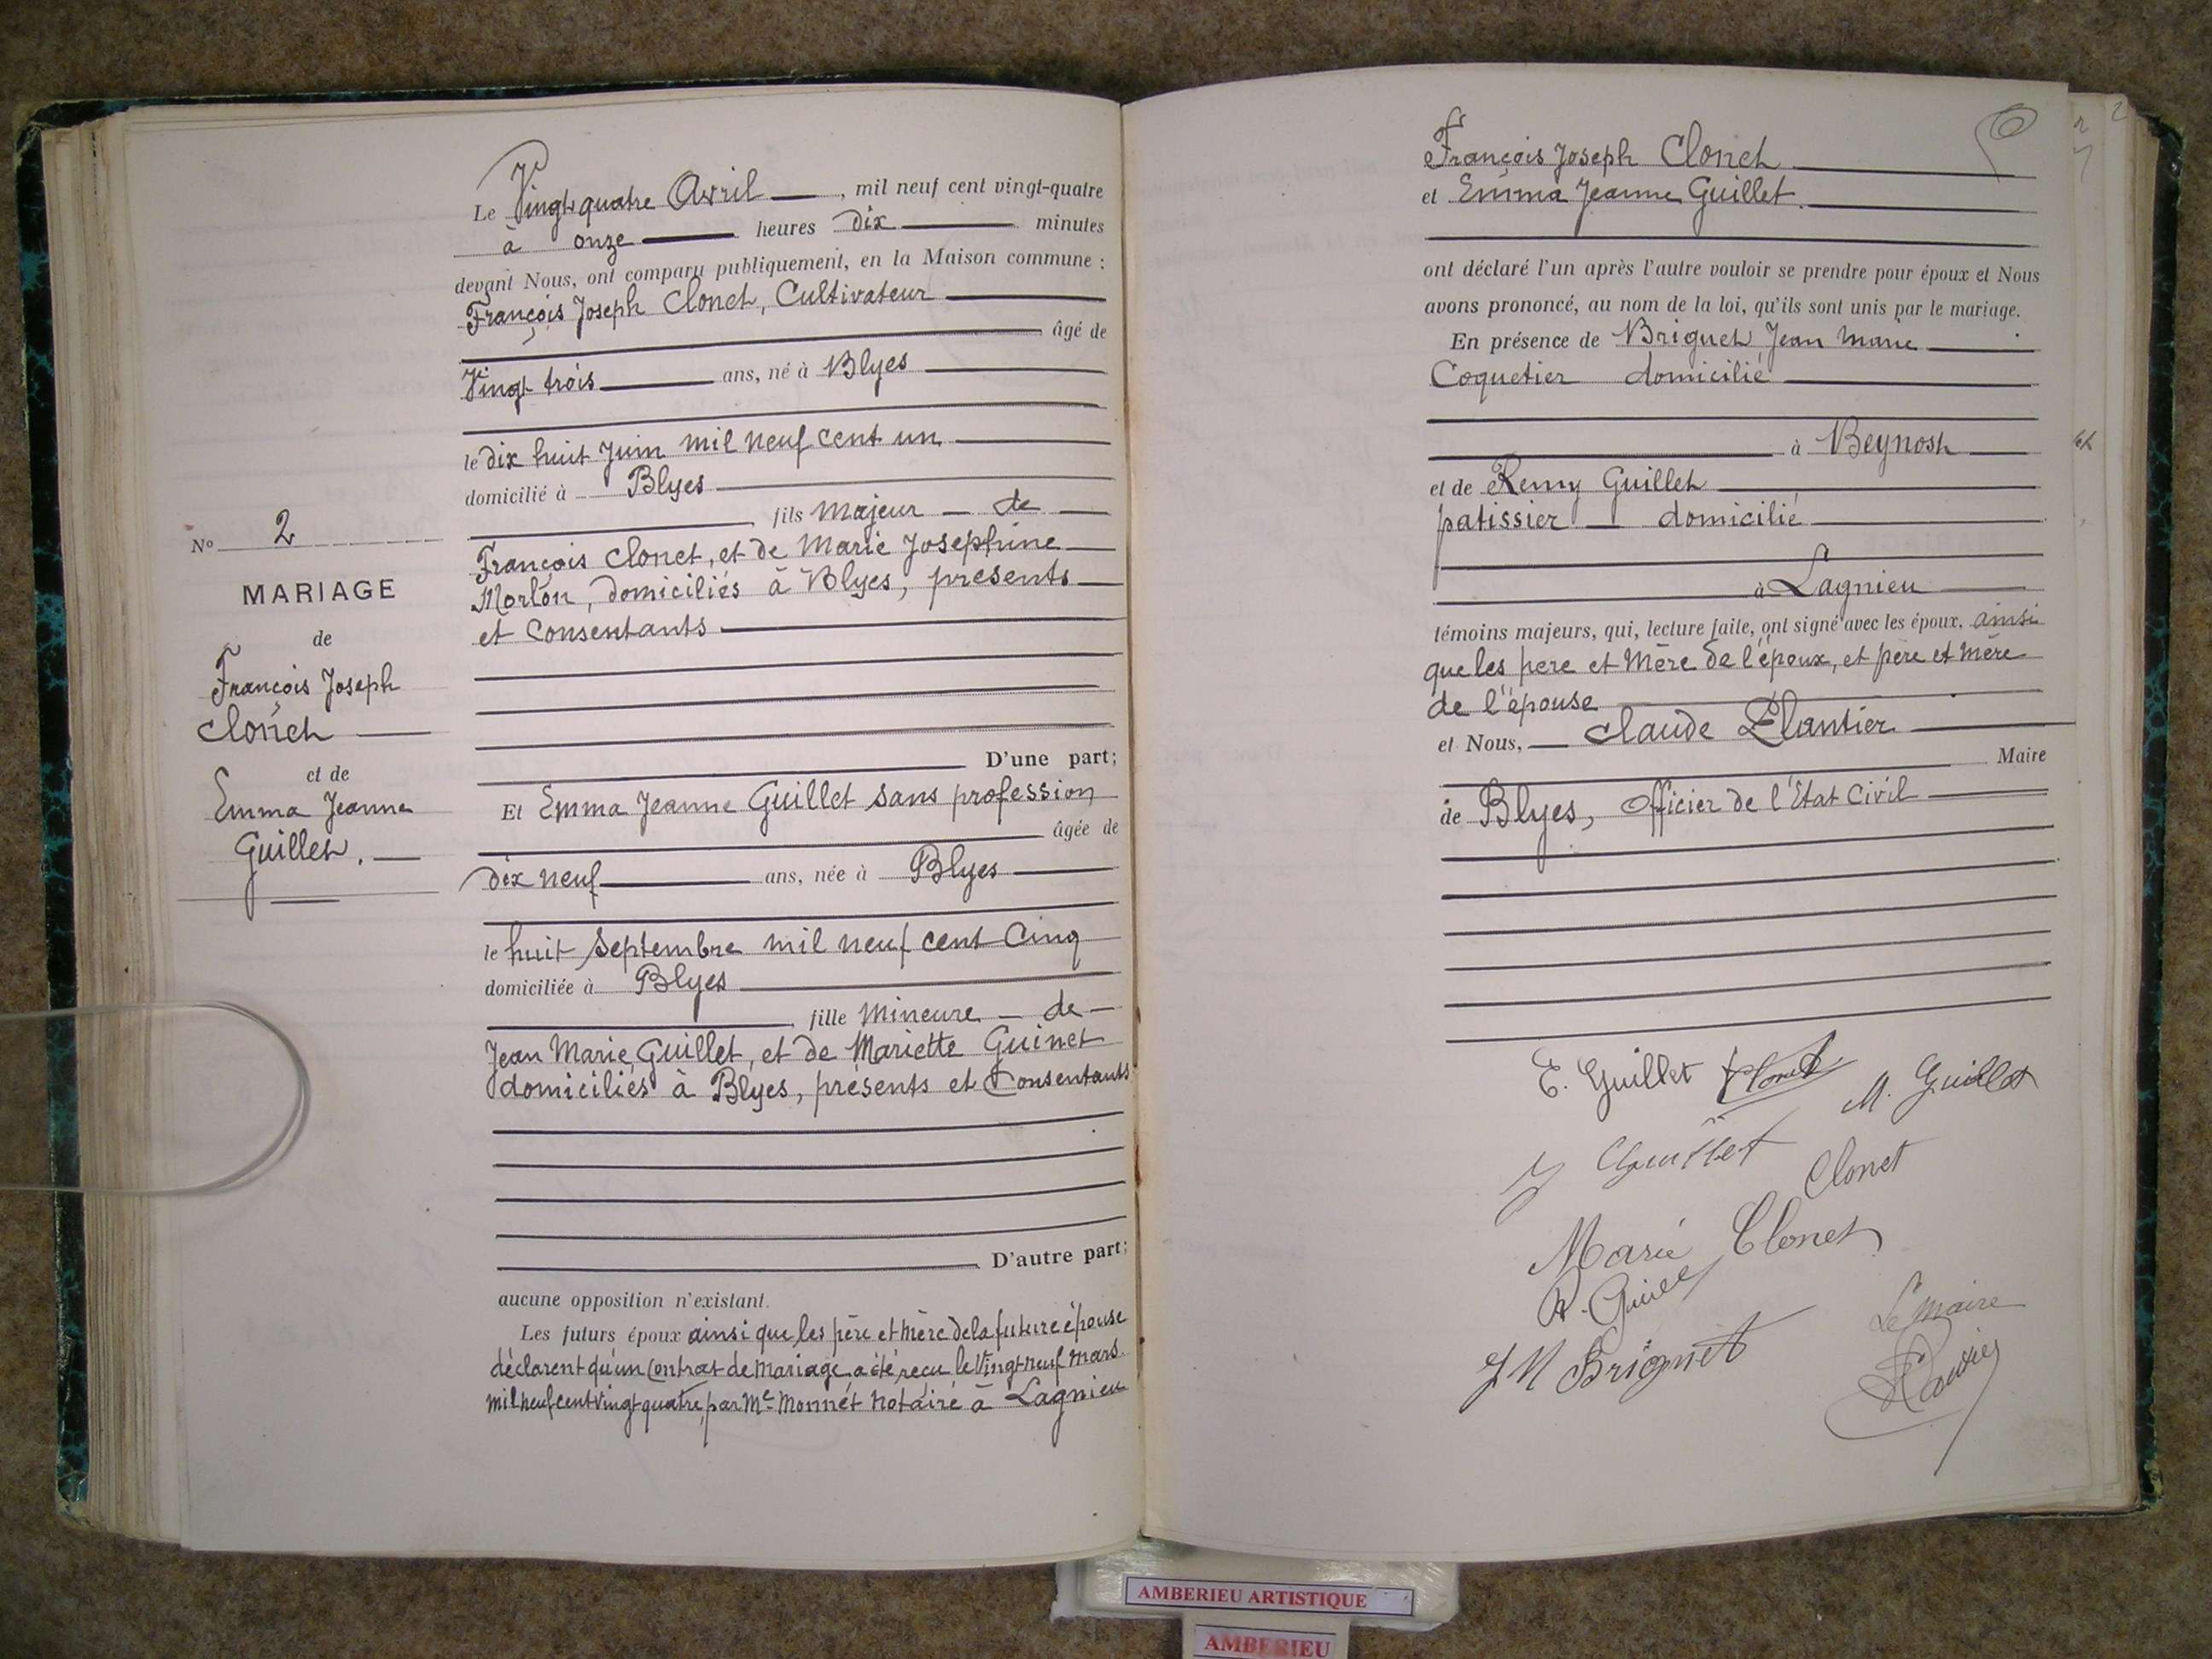 N° 2
MARIAGE
de
François Joseph
Clonet
et de
Emma Jeanne
Guillet.
Le Vingt quatre Avril, mil neuf cent vingt-quatre
à onze heures dix minutes
devant Nous, ont comparu publiquement, en la Maison commune :
François Joseph Clonet, Cultivateur
âgé de
Vingt trois ans, né à Blyes
le dix huit Juin mil neuf cent un
domicilié à Blyes
fils Majeur de
François Clonet, et de Marie Josephine
Morlon, domiciliés à Blyes, présents
et Consentants
D'une part;
Et Emma Jeanne Guillet sans profession
âgée de
dix neuf ans, née à Blyes
le huit Septembre mil neuf cent Cinq
domiciliée à Blyes
fille Mineure de
Jean Marie Guillet, et de Mariette Guinet
domiciliés à Blyes, présents et Consentants
D'autre part;
aucune opposition n'existant.
Les futurs époux ainsi que les père et mère de la future épouse
déclarent qu'un Contrat de Mariage a été reçu le Vingt neuf Mars
mil neuf cent vingt quatre, par Me Monnet Notaire à Lagnieu
François Joseph Clonet
et Emma Jeanne Guillet.
ont déclaré l'un après l'autre vouloir se prendre pour époux et Nous
avons prononcé, au nom de la loi, qu'ils sont unis par le mariage.
En présence de Briguet Jean Marie
Coquetier domicilié
à Beynost
et de Remy Guillet
patissier domicilié
à Lagnieu
témoins majeurs, qui, lecture faite, ont signé avec les époux, ainsi
que les père et Mère de l'époux, et père et mère
de l'épouse
et Nous, Claude Plantier
Maire
de Blyes, Officier de l'Etat Civil
E. Guillet Clonet
M. Guillet
J Guillet
Clonet
Marie Clonet
R. Guillet
Le maire
J M Briguet
AMBERIEU ARTISTIQUE
AMBERIEU